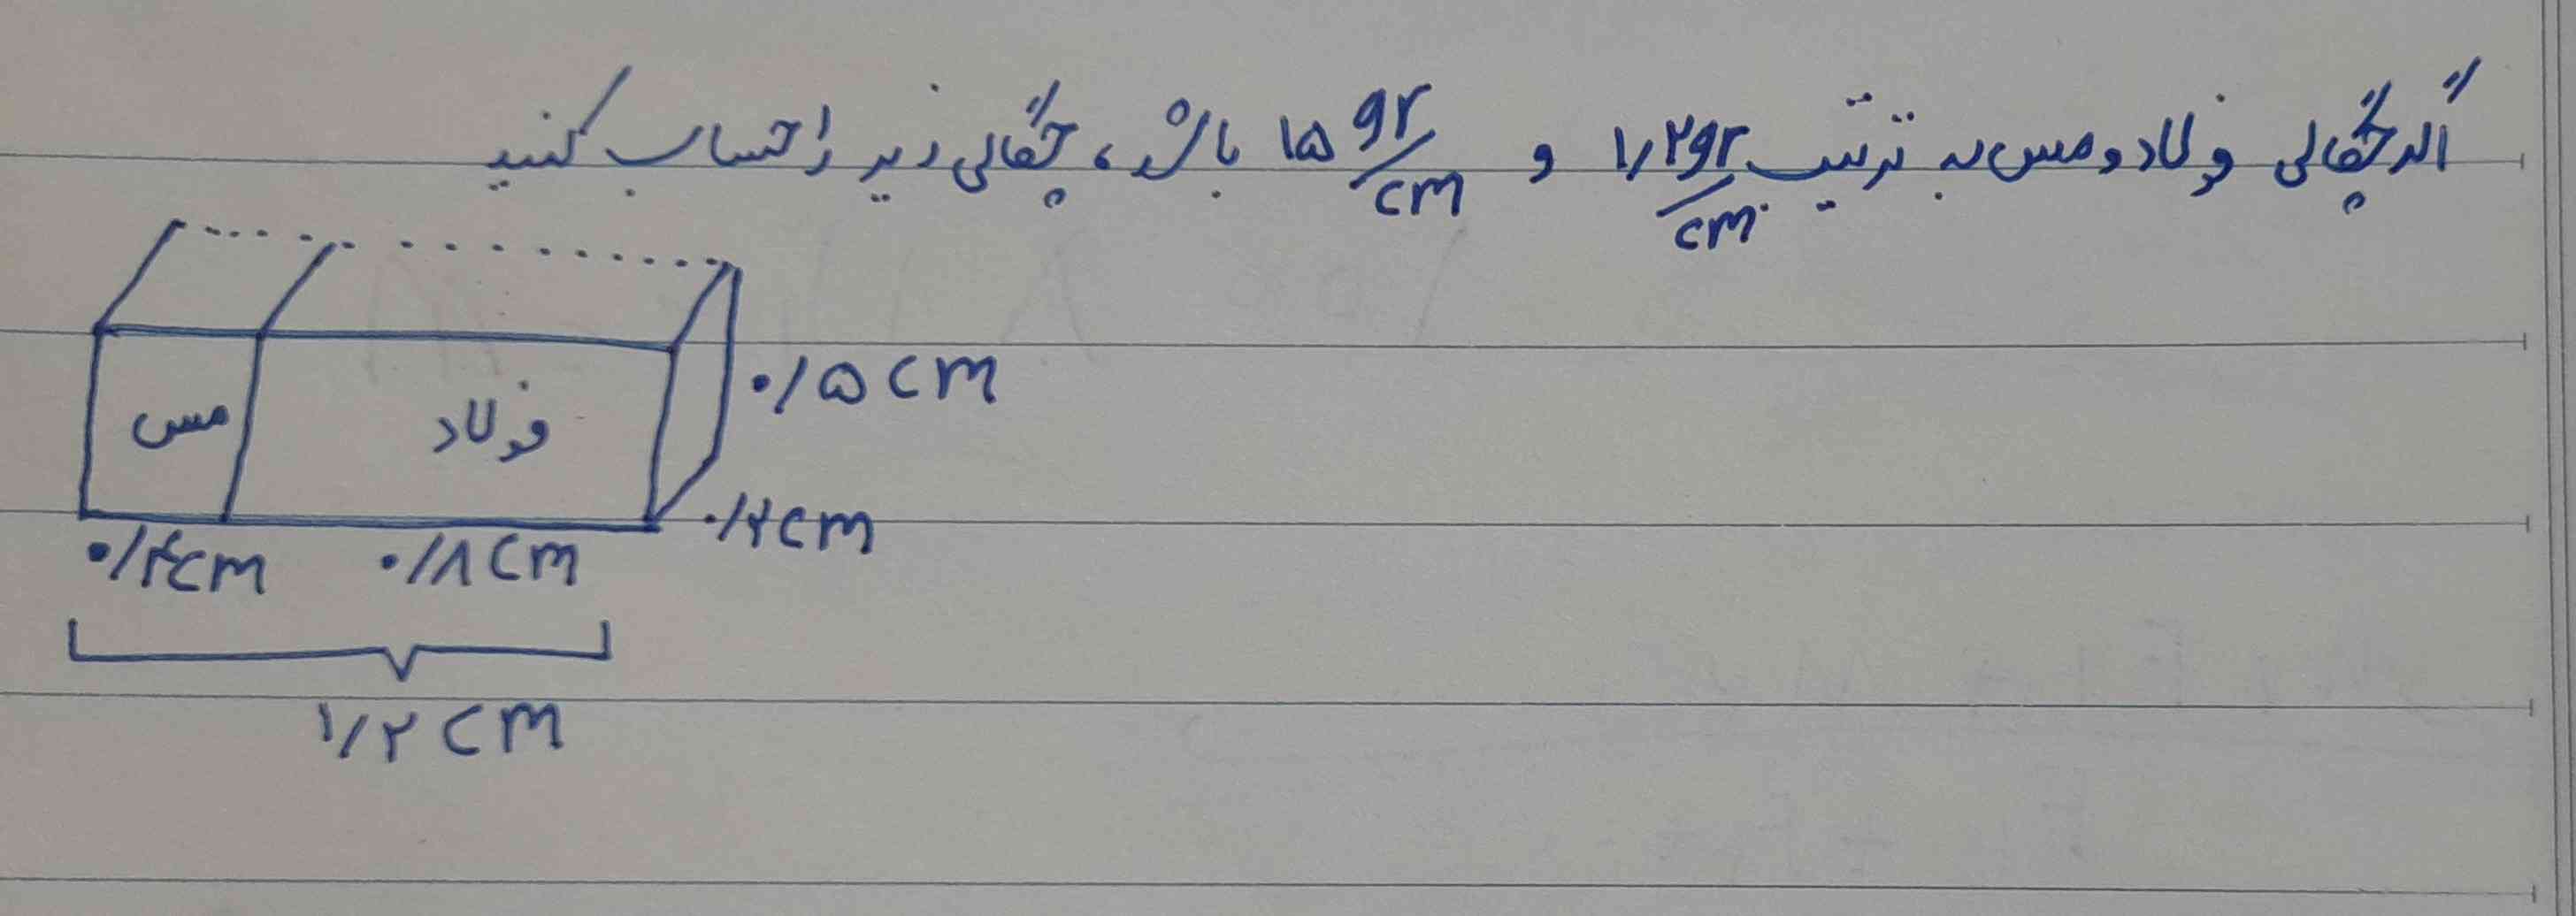 اگر چگالی فولاد و مس به ترتیب ۱/۲gr/cm و ۱۵ gr/cm باشد، چگالی زیر را حساب کنید
۰/۵ cm
مس فولاد
۰/۲cm
۰/۴cm ۰/۸ cm
۱/۲ cm